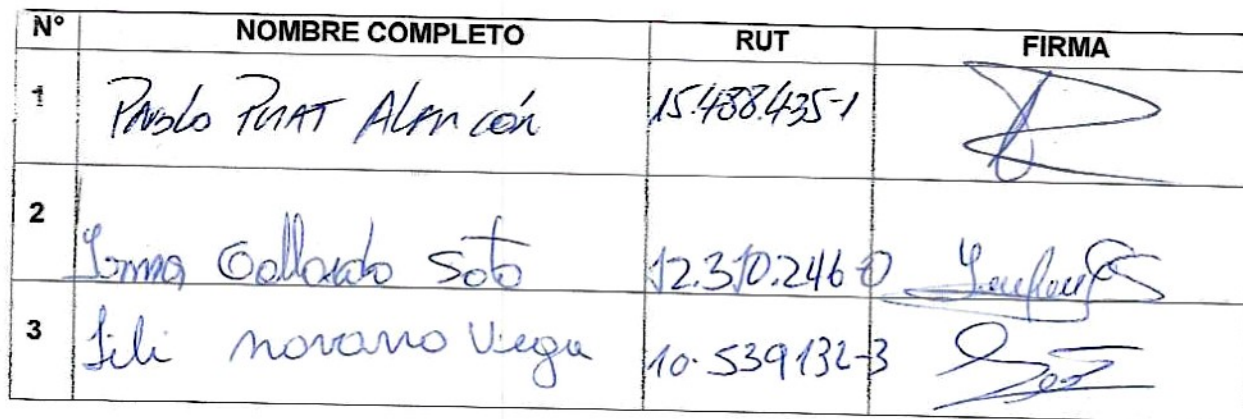 N° NOMBRE COMPLETO RUT FIRMA
1 Pablo Prat Alarcón 15.488.435-1
2 Irma Gallardo Soto 12.310.246-0
3 Lili Navarro Viega 10.539132-3